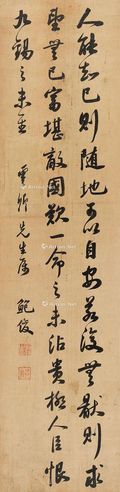 人能知已則随地可以自安若復無猒則求
望無已富堪敵國歎一命之未沾貴極人臣恨
九錫之未至
雲卿先生属 鮑俊